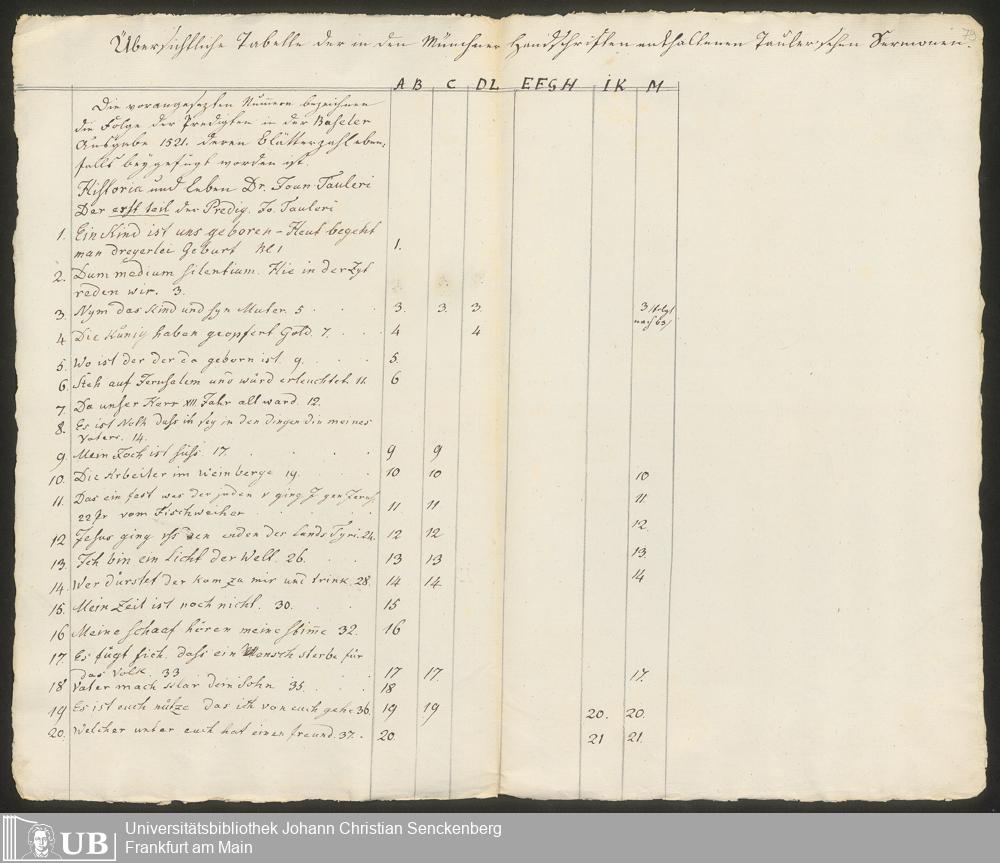 Übersichtliche Tabelle der in den Münchner Handschriften enthaltenen Tauler'schen Sermonen. 79
A B C DL EFGH IK M
Die vorangesezten Numern bezeichnen
die Folge der Predigten in der Baseler
Ausgabe 1521. deren Blätterzahl eben,
falls beygefügt worden ist.
Historia und leben Dr. Joan Tauleri
Der erst teil der Predig. Jo. Tauleri
1. Ein Kind ist uns geboren - Heut begeht
man dreyerlei Geburt Bl 1 1.
2. Dum medium silentium. Hie in der Zyt
reden wir. 3.
3. Nym das Kind und syn Muter. 5 3. 3. 3. 3 /folgt
nach 63/
4 Die Künig haben geopfert Gold. 7. 4 4
5. Wo ist der der da geborn ist 9. 5.
6. Steh auf Jerusalem und würd erleuchtet 11. 6
7. Da unser Herr XII Jahr alt ward. 12.
8. Es ist Noth dass ich sey in den Dingen die meines
Vaters. 14.
9. Mein Joch ist süss. 17. 9 9
10. Die Arbeiter im Weinberge 19. 10 10 10
11. Das ein fest was der juden v ging J. gen Jerus.
22 Pr vom Fischweiher 11 11 11
12 Jesus ging uss den enden des lands Tyri. 24. 12 12 12.
13. Ich bin ein Licht der Welt. 26. 13 13 13
14. Wer dürstet der kom zu mir und trink. 28. 14 14. 14
15. Mein Zeit ist noch nicht. 30. 15
16 Meine schaaf hören meine stime 32. 16
17. Es fügt sich. dass ein Mensch sterbe für
das Volk. 33 17 17. 17.
18 Vater mach klar dein Sohn 35. 18
19 Es ist euch nütze das ich von euch gehe 36. 19 19 20. 20.
20. Welcher unter euch hat einen freund. 37. 20. 21 21.
UB
Universitätsbibliothek Johann Christian Senckenberg
Frankfurt am Main